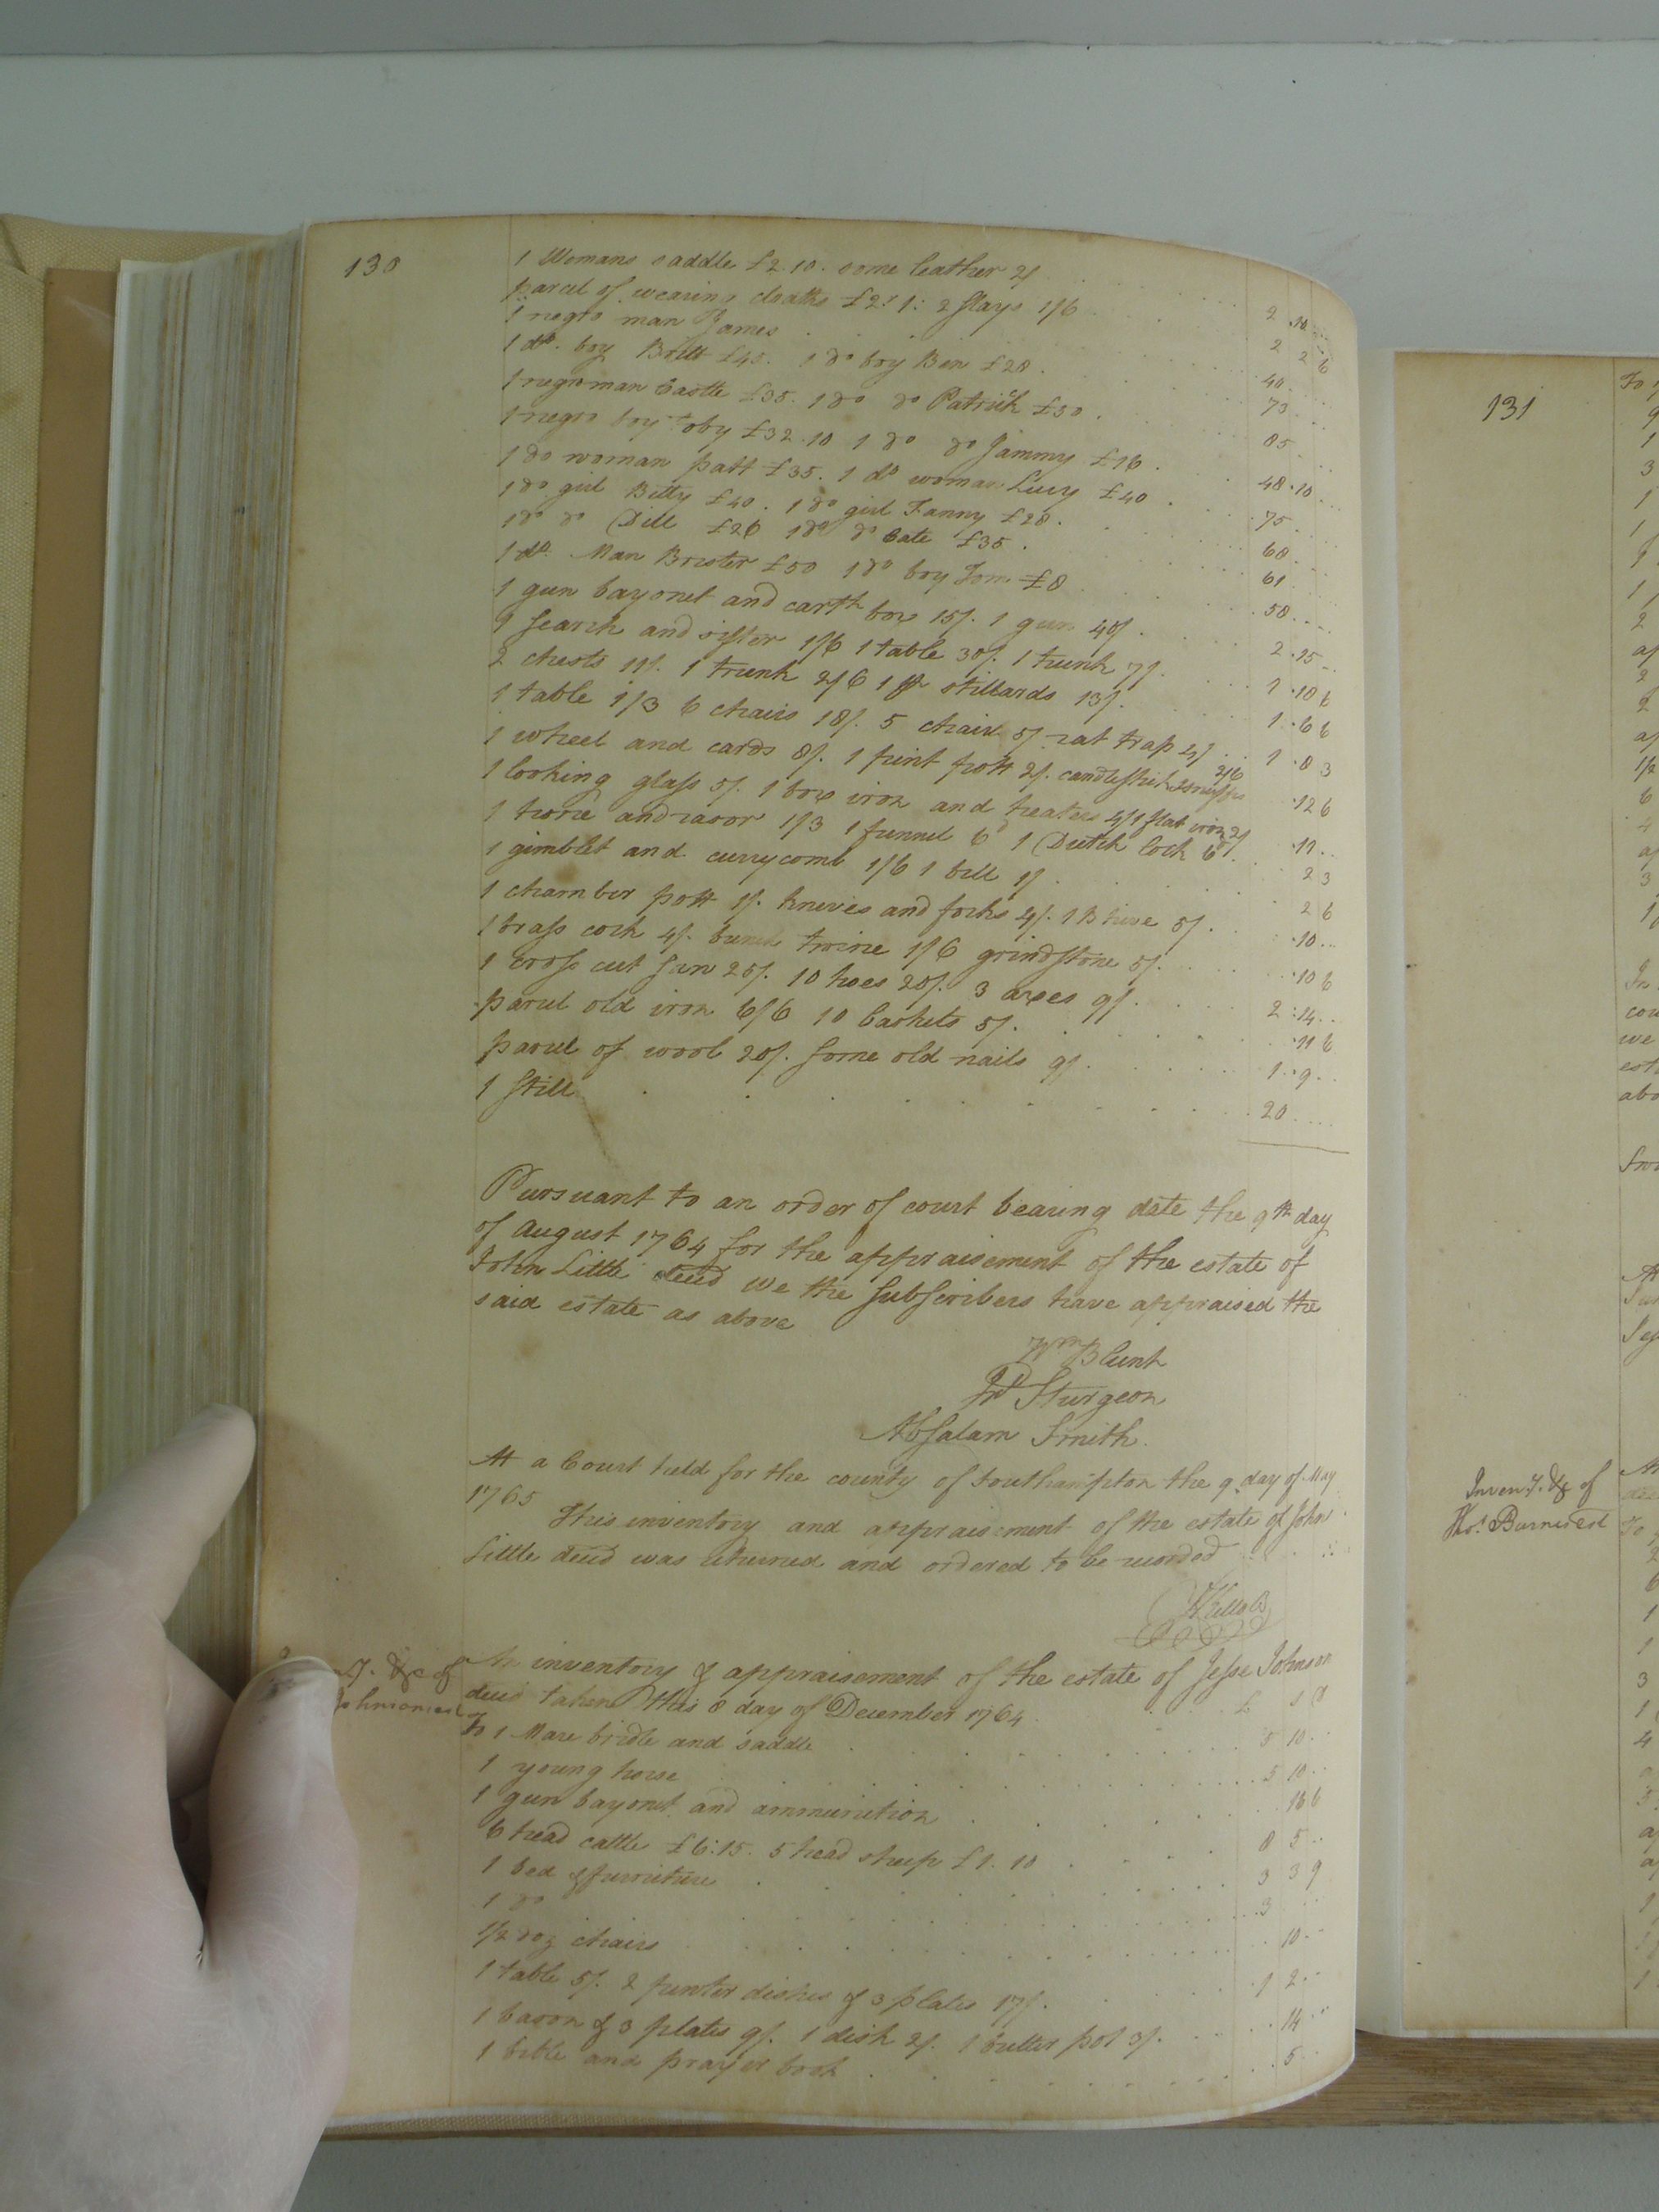 130
1 Womans saddle £2.10. some leather 2/. 2.10
parcel of wearing cloaths £2.1: 2 Slays 1/6 2 2 6
1 negro man James 40.
1 do. boy Britt £45. 1 do boy Ben £28. 73
1 negro man Castle £35. 1 do do Patrick £50. 85
1 negro boy Toby £32.10 1 do do Jammy £16. 48.10
1 do woman patt £35. 1 do woman Lucy £40 75
1 do girl Bitty £40. 1 do girl Fanny £28. 68
1 do do Dill £26 1 do do Cate £35. 61
1 do. Man Brister £50 1 do boy Tom £8 58
1 gun bayonet and carth box 15/. 1 gun 40/. 2.15
1 search and sifter 1/6 1 table 30/. 1 trunk 7/. 1.18 6
2 chests 11/. 1 trunk 2/6 1 pr stillards 13/. 1.6 6
1 table 1/3 6 chairs 18/. 5 chairs 5/. rat trap 4/. 1.8 3
1 wheel and cards 8/. 1 pint pott 2/. candlestick & snuffers 2/6 .12 6
1 looking glass 5/. 1 box iron and heaters 4/ 1 flat iron 2/ .11
1 hone and razor 1/3 1 funnel 6d 1 Dutch lock 6d. 2 3
1 gimblet and currycomb 1/6 1 bell 1/. 2 6
1 chamber pott 1/. knives and forks 4/. 1 B hive 5/. .10
1 brass cock 4/. bunch twine 1/6 grindstone 5/. .10 6
1 cross cut saw 25/. 10 hoes 20/. 3 axes 9/. 2.14
parcel old iron 6/6 10 baskets 5/. .11 6
parcel of wool 20/. some old nails 9/. 1.9
1 Still 20
Pursuant to an order of court bearing date the 9th day
of August 1764 for the appraisement of the estate of
John Little decd we the Subscribers have appraised the
said estate as above
Wm Blunt
Jno Sturgeon
Absalam Smith.
At a Court held for the county of Southampton the 9 day of May
1765 This inventory and appraisement of the estate of John
Little decd was returned and ordered to be recorded
An inventory & appraisement of the estate of Jesse Johnson
decd taken this 8 day of December 1764 £ S D
To 1 Mare bridle and saddle 5 10
1 young horse 5 10
1 gun bayonet and ammunition 16 6
6 head cattle £6:15. 5 head sheep £1.10 8 5
1 bed & furniture 3 3 9
1 do 3
1/2 doz chairs 10
1 table 5/. 2 pewter dishes & 3 plates 17/. 1 2
1 bason & 3 plates 9/. 1 dish 2/. 1 butter pot 3/. 14
1 bible and prayer book 5
131
Inven.y. &c of
Thos. Barns decd